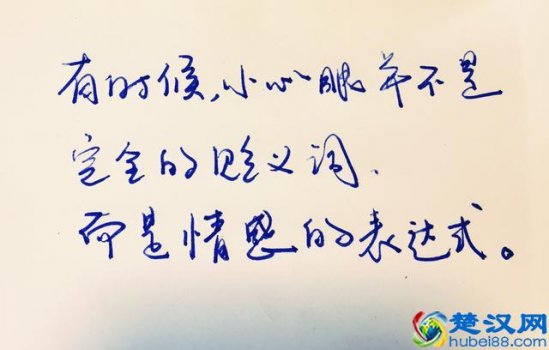 有时候,小心眼并不是
完全的贬义词.
而是情感的表达式。
楚汉网
hubei88.com